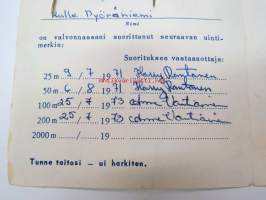 Kalle Pyöräniemi
Nimi
on valvonnassani suorittanut seuraavan uinti-
merkin:
Suorituksen vastaanottaja:
25 m 9 / 7 1971 Harry Rontanen
50 m 6 / 8 1971 Harry Rontanen
100 m 25 / 7 1973
200 m 25 / 7 1973
2000 m / 19
Tunne taitosi — ui harkiten.